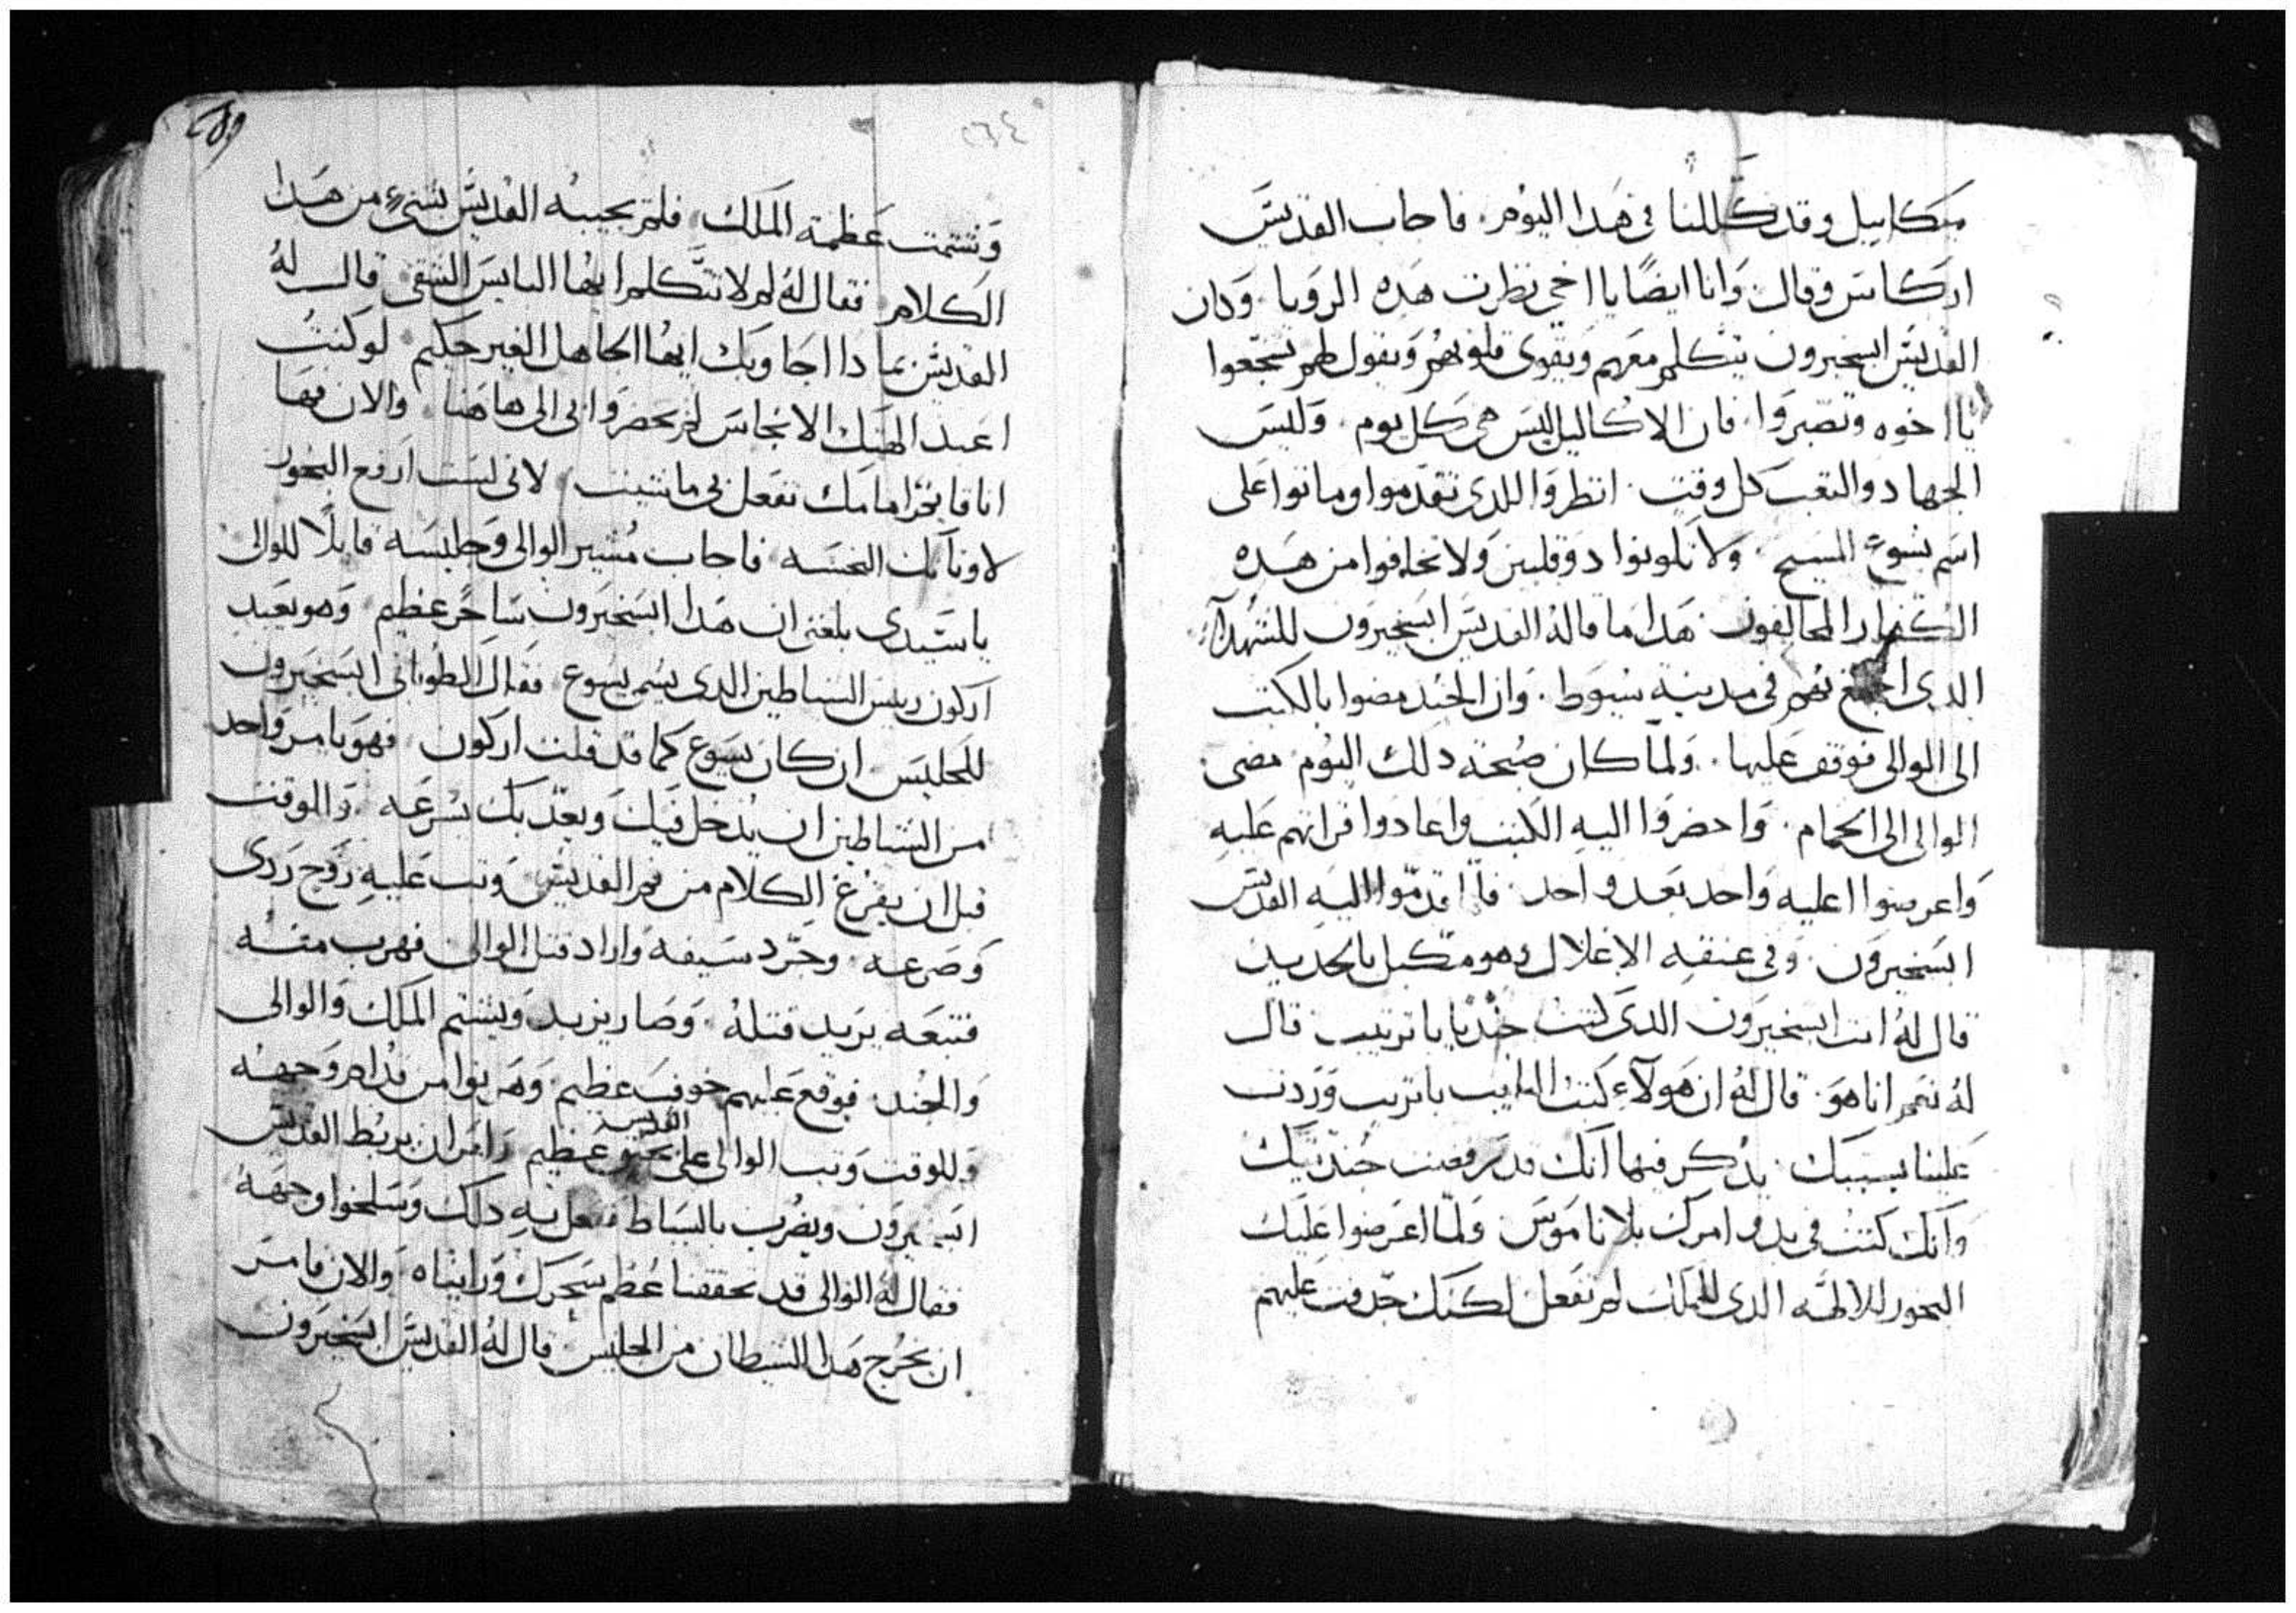 ميكاييل وقد كللنا في هدا اليوم. فاجاب القديس
اركاس وقال وانا ايضًا يا اخي نظرت هده الرويا. وكان
القديس ابسخيرون يتكلم معهم ويقوي قلوبهم ويقول لهم تشجعوا
يا اخوه وتصبروا. فان الاكاليل ليس هي كل يوم. وليس
الجهاد والتعب كل وقت. انظروا اللدي تقدموا وماتوا على
اسم يسوع المسيح. ولا تكونوا دو قلبين ولا تخافوا من هده
الكفار المخالفون. هدا ما قاله القديس ابسخيرون للشهدآ
الدي في مدينه سيوط. وان الجند مضوا بالكتب
الى الوالي فوقف عليها. ولما كان صبحة دلك اليوم مضى
الوالي الى الحمام. واحضروا اليه الكتب واعادوا قراتهم عليه
واعرضوا اعليه واحد بعد واحد. قدموا اليه القديس
ابسخيرون. وفي عنقه الاغلال وهو مكبل بالحديد
قال له انت ابسخيرون الدي كنت جنديا باتريب قال
له نعم انا هو. قال له ان هولآء كتب باتريب وردت
علينا بسببك. يدكر فيها انك قد رفضت جنديتك
وانك كنت في بدو امرك بلا ناموس ولما اعرضوا عليك
البخور للالهه الدي للملك لم تفعل لكنك جدفت عليهم
٢٦٤
وشتمت عظمة الملك. فلم يجيبه القديس بشيء من هدا
الكلام. فقال له لم لا تتكلم ايها البايس الشقي قال له
القديس بمادا اجاوبك ايها الجاهل الغير حكيم. لو كنت
اعبد الهتك الانجاس لم يحضروا بي الى هاهنا. والان فها
انا قايم امامك تفعل بي ما شيت. لاني لست ارفع البخور
لاوثانك النجسه. فاجاب مشير الوالي وجليسه قايلًا للوالي
يا سيدي بلغني ان هدا ابسخيرون ساحر عظيم. وهو يعبد
اركون رييس الشياطين الدي يسم يسوع. فقال الطوباني ابسخيرون
للجليس ان كان يسوع كما قد قلت اركون. فهو يامر واحد
من الشياطين ان يدخل فيك ويعدبك بسرعه. وللوقت
قبل ان يفرغ الكلام من فم القديس وتب عليه روح ردي
وصرعه. وجرد سيفه واراد قتل الوالي فهرب منه
فتبعه يريد قتله. وصار يزبد ويشتم الملك والوالي
والجند. فوقع عليهم خوف عظيم وهربوا من قدام وجهه
وللوقت وتب الوالي على القديس عظيم وامر ان يربط القديس
ابسخيرون ويضرب بالسياط ففعل به دلك وسلخوا وجهه
فقال له الوالي قد تحققنا عظم سحرك ورايناه. والان فامر
ان يخرج هدا الشيطان من الجليس قال له القديس ابسخيرون